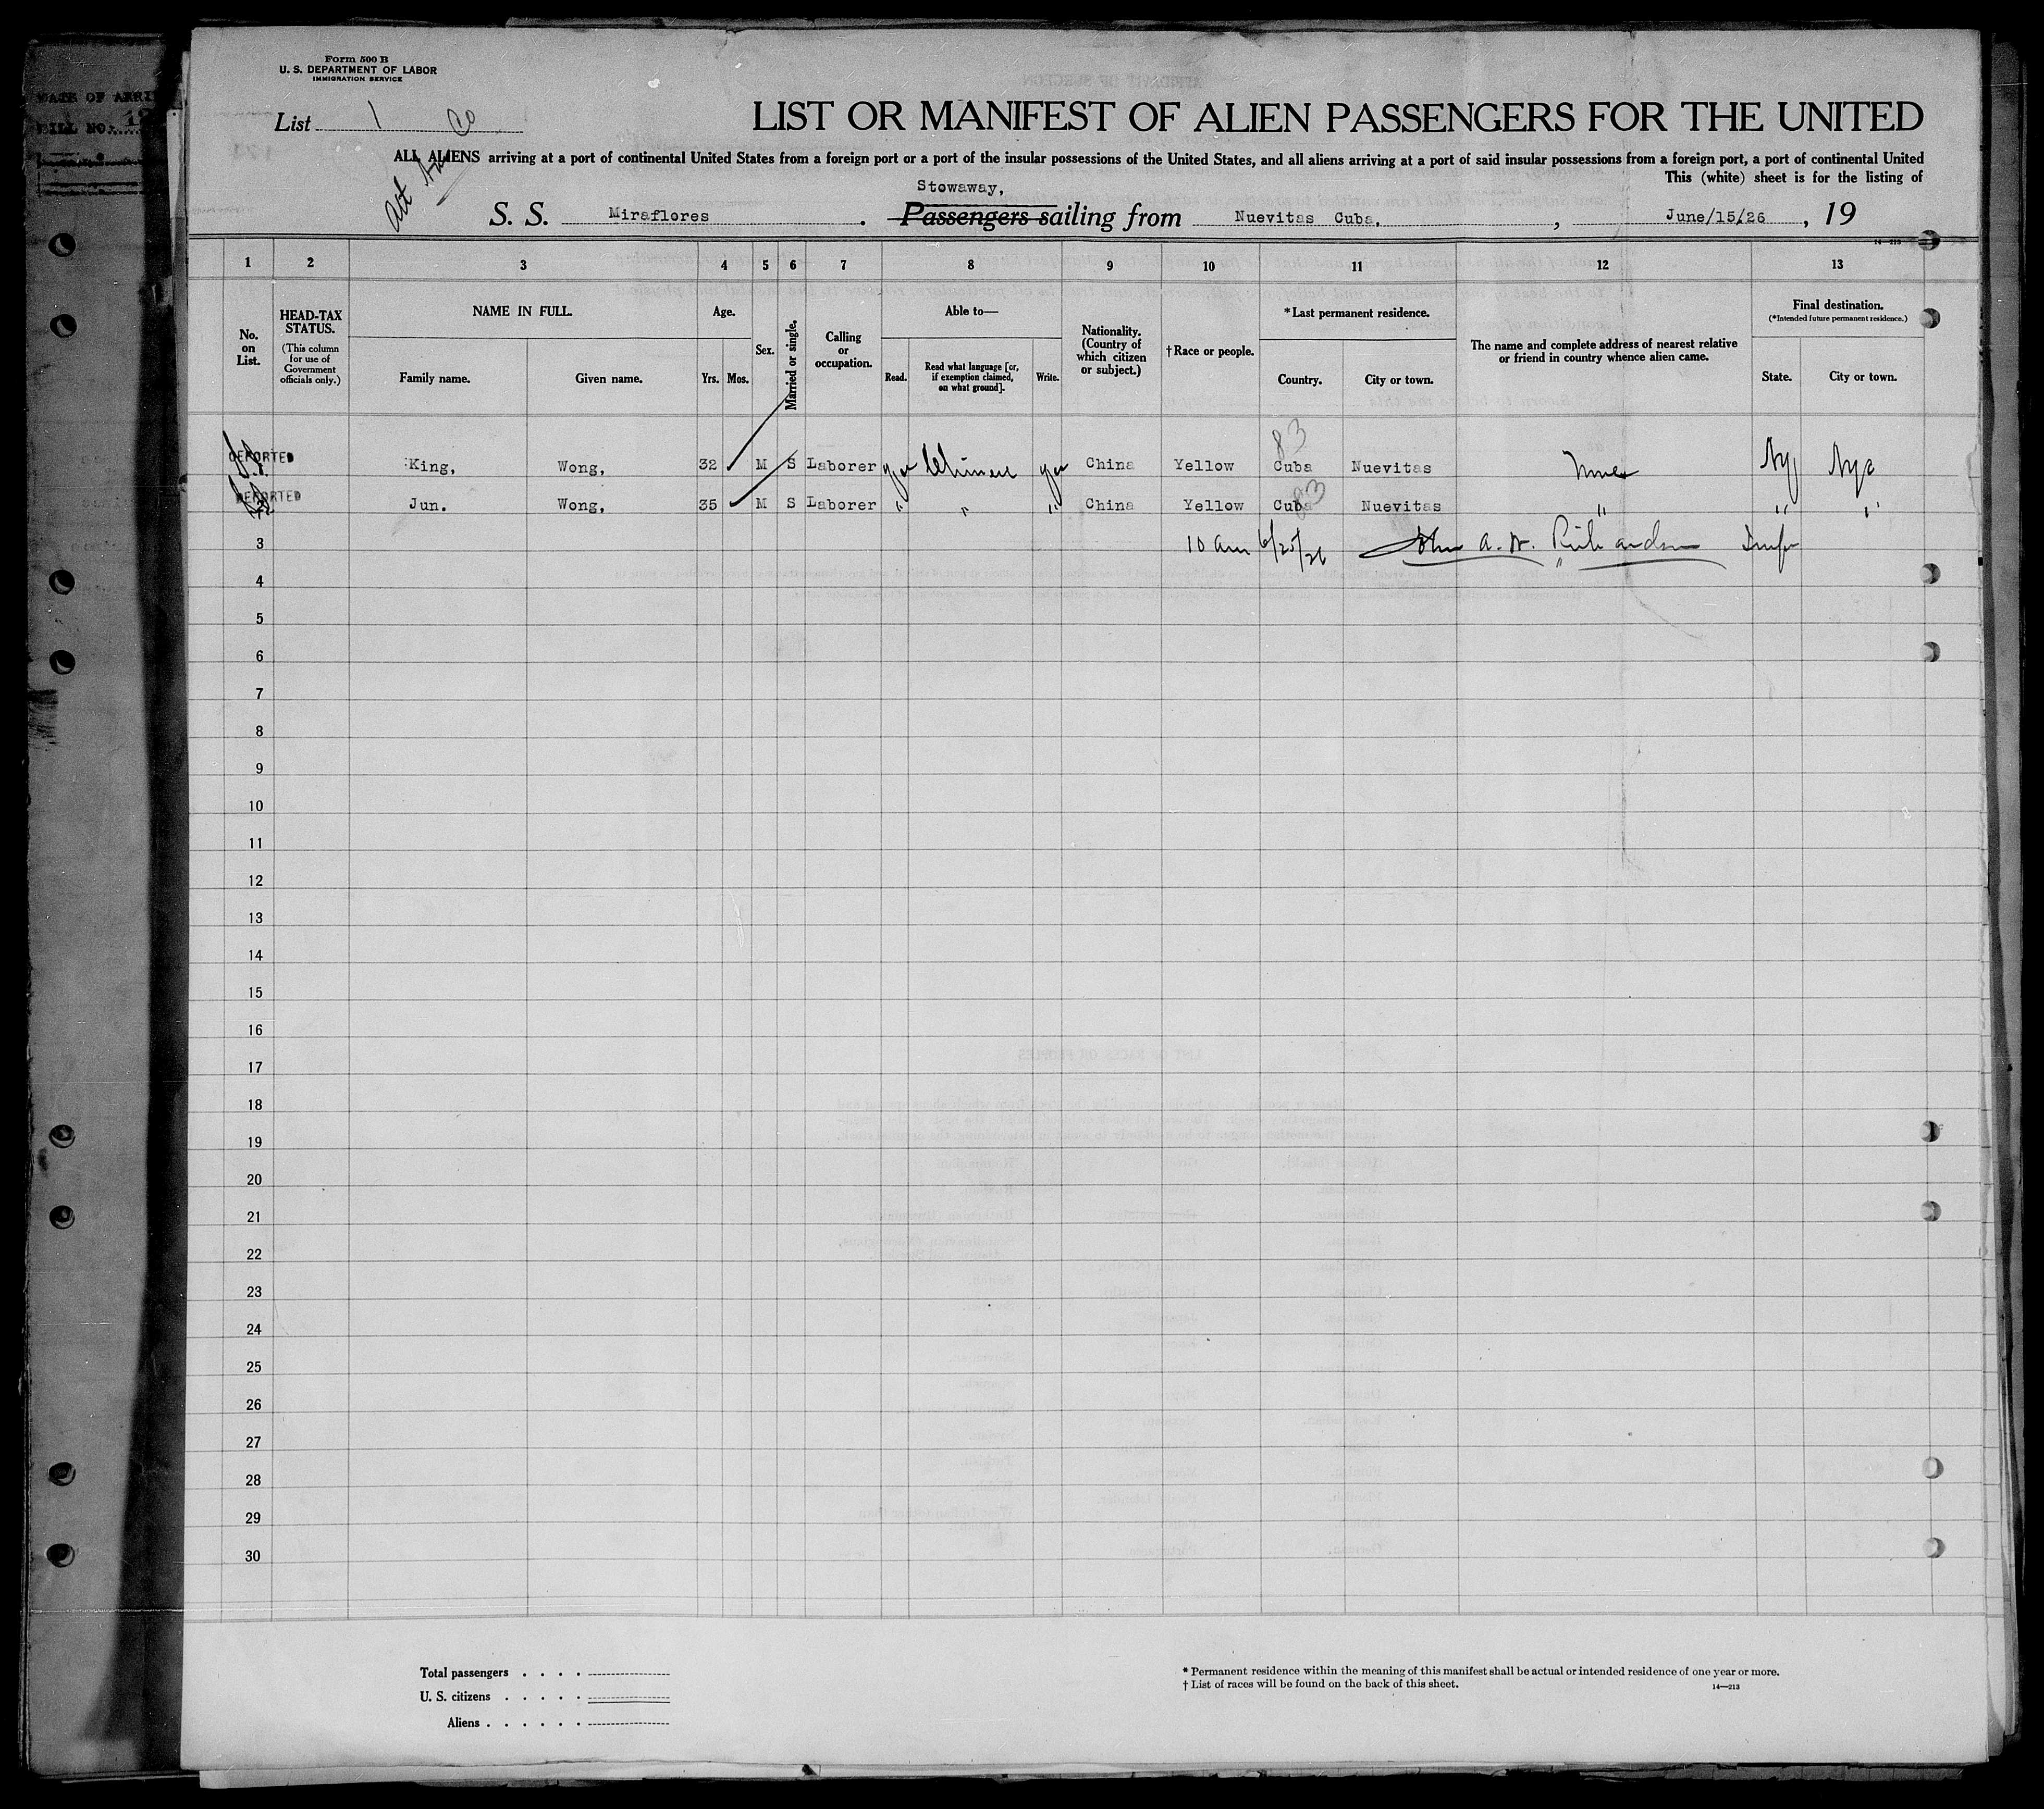 DATE OF ARRI
BILL NO.
Form 500 B
U. S. DEPARTMENT OF LABOR
IMMIGRATION SERVICE
List 1
LIST OR MANIFEST OF ALIEN PASSENGERS FOR THE UNITED
ALL ALIENS arriving at a port of continental United States from a foreign port or a port of the insular possessions of the United States, and all aliens arriving at a port of said insular possessions from a foreign port, a port of continental United
This (white) sheet is for the listing of
Stowaway,
S. S. Miraflores . Passengers sailing from Nuevitas Cuba, , June/15/26 , 19
14—213
1 2 3 4 5 6 7 8 9 10 11 12 13
No. on List.
HEAD-TAX STATUS.
(This column for use of Government officials only.)
NAME IN FULL.
Family name. Given name.
Age.
Yrs. Mos.
Sex.
Married or single.
Calling or occupation.
Able to—
Read. Read what language [or, if exemption claimed, on what ground]. Write.
Nationality. (Country of which citizen or subject.)
†Race or people.
*Last permanent residence.
Country. City or town.
The name and complete address of nearest relative or friend in country whence alien came.
Final destination.
(*Intended future permanent residence.)
State. City or town.
83
DEPORTED King, Wong, 32 M S Laborer yes Chinese yes China Yellow Cuba Nuevitas None Ny Nyc
DEPORTED Jun. Wong, 35 M S Laborer " " " China Yellow Cuba 83 Nuevitas " " "
3 10 am 6/25/26 John A. W. Richardson Insp
4
5
6
7
8
9
10
11
12
13
14
15
16
17
18
19
20
21
22
23
24
25
26
27
28
29
30
Total passengers . . . .
U. S. citizens . . . . .
Aliens . . . . . .
* Permanent residence within the meaning of this manifest shall be actual or intended residence of one year or more.
† List of races will be found on the back of this sheet.
14—213